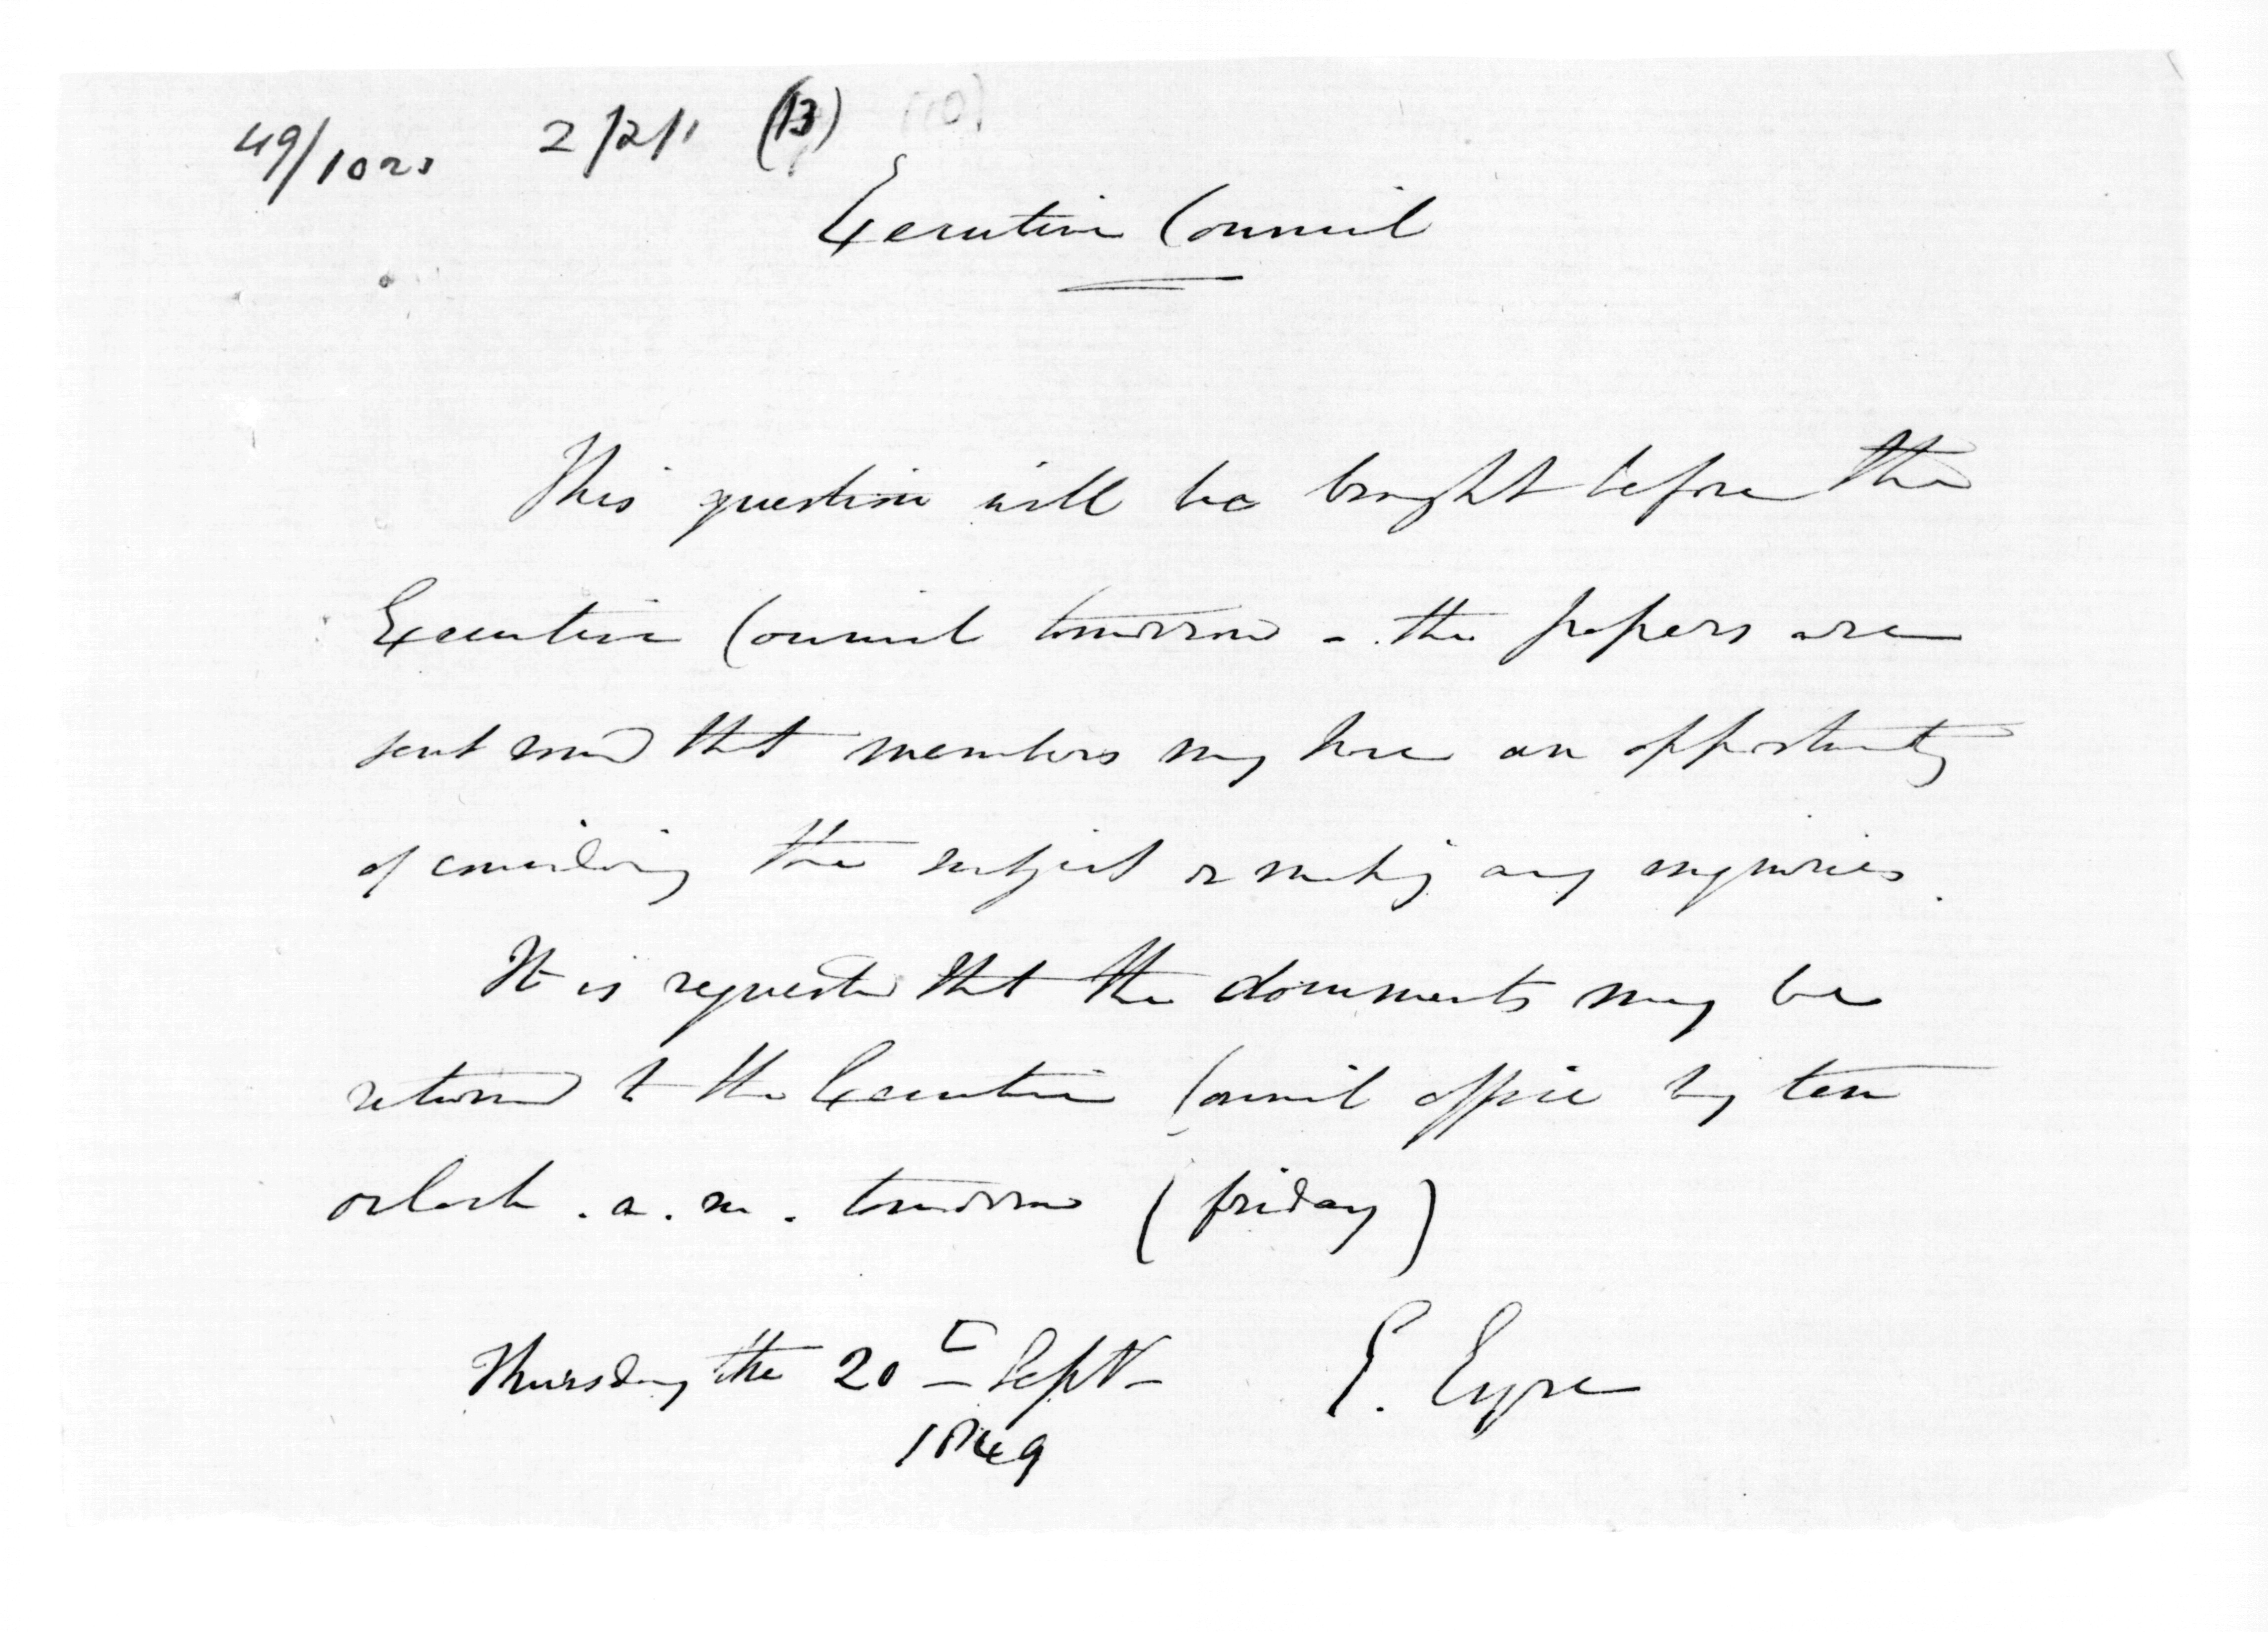 49/1023 2/2/1 (13) (10)
Executive Council
This question will be brought before the
Executive Council tomorrow - the papers are
sent round that members may have an opportunity
of considering the subject or making any enquiries.
It is requested that the documents may be
returned to the Executive Council office by ten
oclock . a . m . tomorrow (friday)
Thursday the 20th Sept E. Eyre
1849